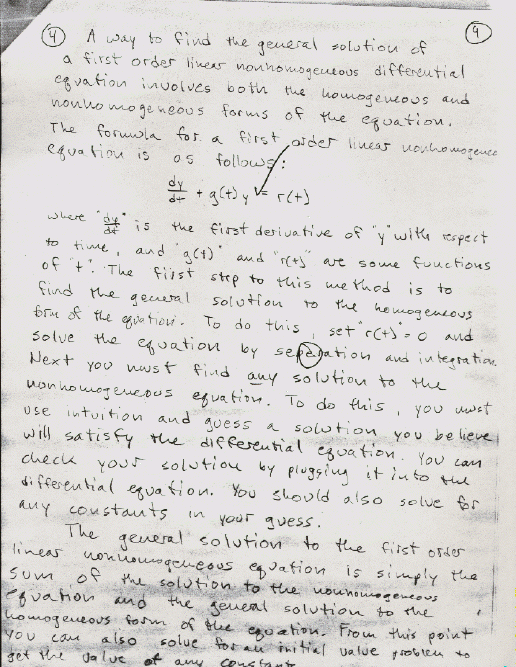 (4) A way to find the general solution of (4)
a first order linear nonhomogeneous differential
equation involves both the homogeneous and
nonhomogeneous forms of the equation.
The formula for a first order linear nonhomogence
equation is as follows:
dy/dt + g(t)y = r(t)
where "dy/dt" is the first derivative of "y" with respect
to time, and "g(t)" and "r(t)" are some functions
of "t". The first step to this method is to
find the general solution to the homogeneous
form of the equation. To do this, set "r(t)" = 0 and
solve the equation by separation and integration.
Next you must find any solution to the
nonhomogeneous equation. To do this, you must
use intuition and guess a solution you believe
will satisfy the differential equation. You can
check your solution by plugging it into the
differential equation. You should also solve for
any constants in your guess.
The general solution to the first order
linear nonhomogeneous equation is simply the
sum of the solution to the nonhomogeneous
equation and the general solution to the
homogeneous form of the equation. From this point
you can also solve for an initial value problem to
get the value of any constant